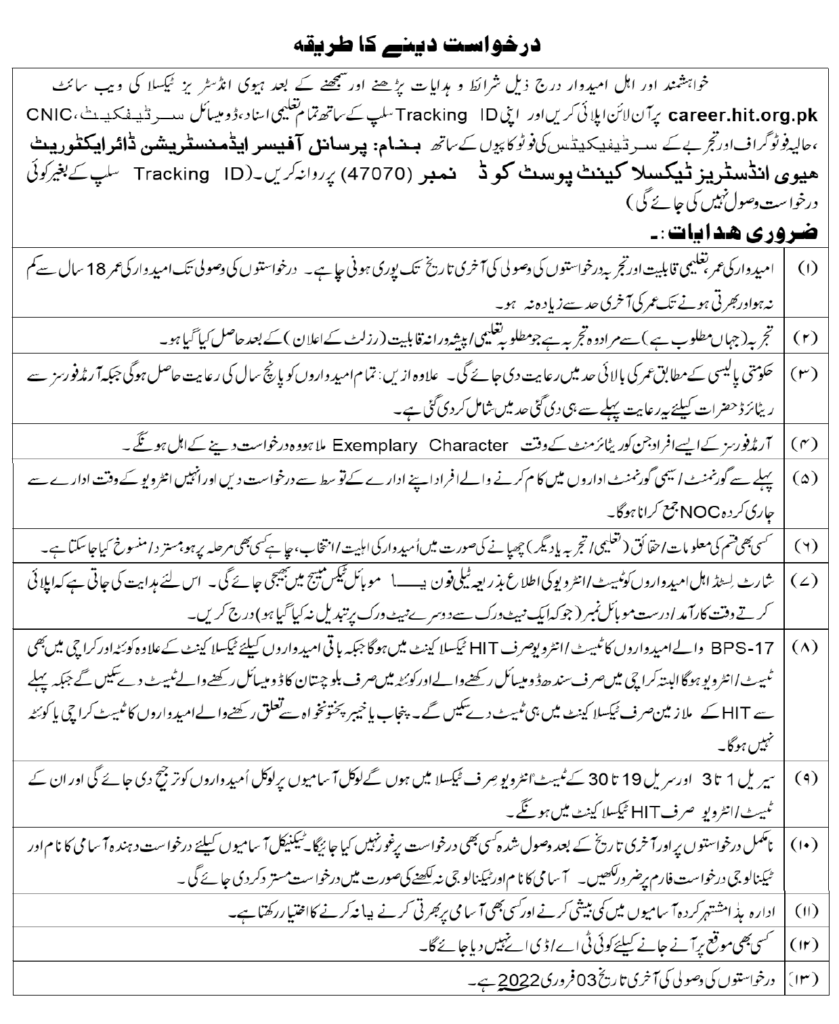 درخواست دینے کا طریقہ
خواہشمند اور اہل امیدوار درج ذیل شرائط و ہدایات پڑھنے اور سمجھنے کے بعد ہیوی انڈسٹریز ٹیکسلا کی ویب سائٹ
career.hit.org.pk پر آن لائن اپلائی کریں اور اپنی Tracking ID سلپ کے ساتھ تمام تعلیمی اسناد، ڈومیسائل سرٹیفکیٹ، CNIC
، حالیہ فوٹو گراف اور تجربے کے سرٹیفیکیٹس کی فوٹو کاپیوں کے ساتھ بنام: پرسانل آفیسر ایڈمنسٹریشن ڈائرایکٹوریٹ
ہیوی انڈسٹریز ٹیکسلا کینٹ پوسٹ کوڈ نمبر (47070) پر روانہ کریں۔ (Tracking ID سلپ کے بغیر کوئی
درخواست وصول نہیں کی جائے گی)
ضروری ھدایات:۔
(۱) امیدوار کی عمر، تعلیمی قابلیت اور تجربہ درخواستوں کی وصولی کی آخری تاریخ تک پوری ہونی چاہے۔ درخواستوں کی وصولی تک امیدوار کی عمر 18 سال سے کم
نہ ہو اور بھرتی ہونے تک عمر کی آخری حد سے زیادہ نہ ہو۔
(۲) تجربہ (جہاں مطلوب ہے) سے مراد وہ تجربہ ہے جو مطلوبہ تعلیمی/پیشہ ورانہ قابلیت (رزلٹ کے اعلان) کے بعد حاصل کیا گیا ہو۔
(۳) حکومتی پالیسی کے مطابق عمر کی بالائی حد میں رعایت دی جائے گی۔ علاوہ ازیں: تمام امیدواروں کو پانچ سال کی رعایت حاصل ہوگی جبکہ آرمڈ فورسز سے
ریٹائرڈ حضرات کیلئے یہ رعایت پہلے سے ہی دی گئی حد میں شامل کر دی گئی ہے۔
(۴) آرمڈ فورسز کے ایسے افراد جن کو ریٹائرمنٹ کے وقت Exemplary Character ملا ہو وہ درخواست دینے کے اہل ہونگے۔
(۵) پہلے سے گورنمنٹ/ سیمی گورنمنٹ اداروں میں کام کرنے والے افراد اپنے ادارے کے توسط سے درخواست دیں اور انہیں انٹرویو کے وقت ادارے سے
جاری کردہ NOC جمع کرانا ہوگا۔
(۶) کسی بھی قسم کی معلومات/ حقائق (تعلیمی/ تجربہ یا دیگر) چھپانے کی صورت میں اُمیدوار کی اہلیت/ انتخاب، چاہے کسی بھی مرحلہ پر ہو، مسترد/ منسوخ کیا جا سکتا ہے۔
(۷) شارٹ لسٹڈ اہل امیدواروں کو ٹیسٹ/انٹرویو کی اطلاع بذریعہ ٹیلی فون یا موبائل ٹیکس میسج میں بھیجی جائے گی۔ اس لئے ہدایت کی جاتی ہے کہ اپلائی
کرتے وقت کارآمد/ درست موبائل نمبر (جو کہ ایک نیٹ ورک سے دوسرے نیٹ ورک پر تبدیل نہ کیا گیا ہو) درج کریں۔
(۸) BPS-17 والے امیدواروں کا ٹیسٹ/انٹرویو صرف HIT ٹیکسلا کینٹ میں ہوگا جبکہ باقی امیدواروں کیلئے ٹیکسلا کینٹ کے علاوہ کوئٹہ اور کراچی میں بھی
ٹیسٹ/انٹرویو ہوگا البتہ کراچی میں صرف سندھ ڈومیسائل رکھنے والے اور کوئٹہ میں صرف بلوچستان کا ڈومیسائل رکھنے والے ٹیسٹ دے سکیں گے جبکہ پہلے
سے HIT کے ملازمین صرف ٹیکسلا کینٹ میں ہی ٹیسٹ دے سکیں گے۔ پنجاب یا خیبر پختونخواہ سے تعلق رکھنے والے امیدواروں کا ٹیسٹ کراچی یا کوئٹہ
نہیں ہوگا۔
(۹) سیریل 1 تا 3 اور سریل 19 تا 30 کے ٹیسٹ/انٹرویو صرف ٹیکسلا میں ہوں گے لوکل آسامیوں پر لوکل اُمیدواروں کو ترجیح دی جائے گی اور ان کے
ٹیسٹ/انٹرویو صرف HIT ٹیکسلا کینٹ میں ہونگے۔
(۱۰) نامکمل درخواستوں پر اور آخری تاریخ کے بعد وصول شدہ کسی بھی درخواست پر غور نہیں کیا جائیگا۔ ٹیکنیکل آسامیوں کیلئے درخواست دہندہ آسامی کا نام اور
ٹیکنالوجی درخواست فارم پر ضرور لکھیں۔ آسامی کا نام اور ٹیکنالوجی نہ لکھنے کی صورت میں درخواست مسترد کر دی جائے گی۔
(۱۱) ادارہ ہذا مشتہر کردہ آسامیوں میں کمی بیشی کرنے اور کسی بھی آسامی پر بھرتی کرنے یا نہ کرنے کا اختیار رکھتا ہے۔
(۱۲) کسی بھی موقع پر آنے جانے کیلئے کوئی ٹی اے/ ڈی اے نہیں دیا جائے گا۔
(۱۳) درخواستوں کی وصولی کی آخری تاریخ 03 فروری 2022 ہے۔